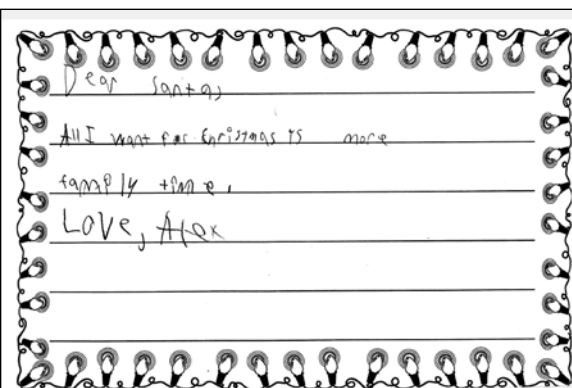 Dear Santa,
All I want for Christmas is more
family time.
Love, Alex